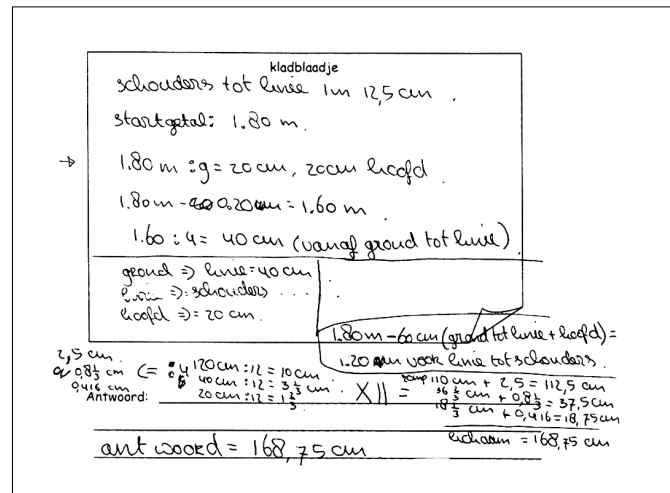 kladblaadje
schouders tot knie 1m 12,5 cm.
startgetal: 1.80 m.
→ 1.80 m : 9 = 20 cm, 20cm hoofd
1.80m - 0.20 = 1.60 m.
1.60 : 4 = 40 cm (vanaf grond tot knie)
grond => knie = 40 cm
knie => schouders ...
hoofd => = 20 cm.
1.80m - 60 cm (grond tot knie + hoofd) =
1.20 m voor knie tot schouders.
2,5 cm
0,8 1/3 cm
0,416 cm
<= : 4
120cm : 12 = 10 cm
40 cm : 12 = 3 1/3 cm.
20 cm : 12 = 1 2/3
X 11 =
romp 110 cm + 2,5 = 112,5 cm
36 2/3 cm + 0,8 1/3 = 37,5cm
18 1/3 cm + 0,416 = 18,75 cm
lichaam = 168,75 cm
Antwoord:
antwoord = 168,75 cm